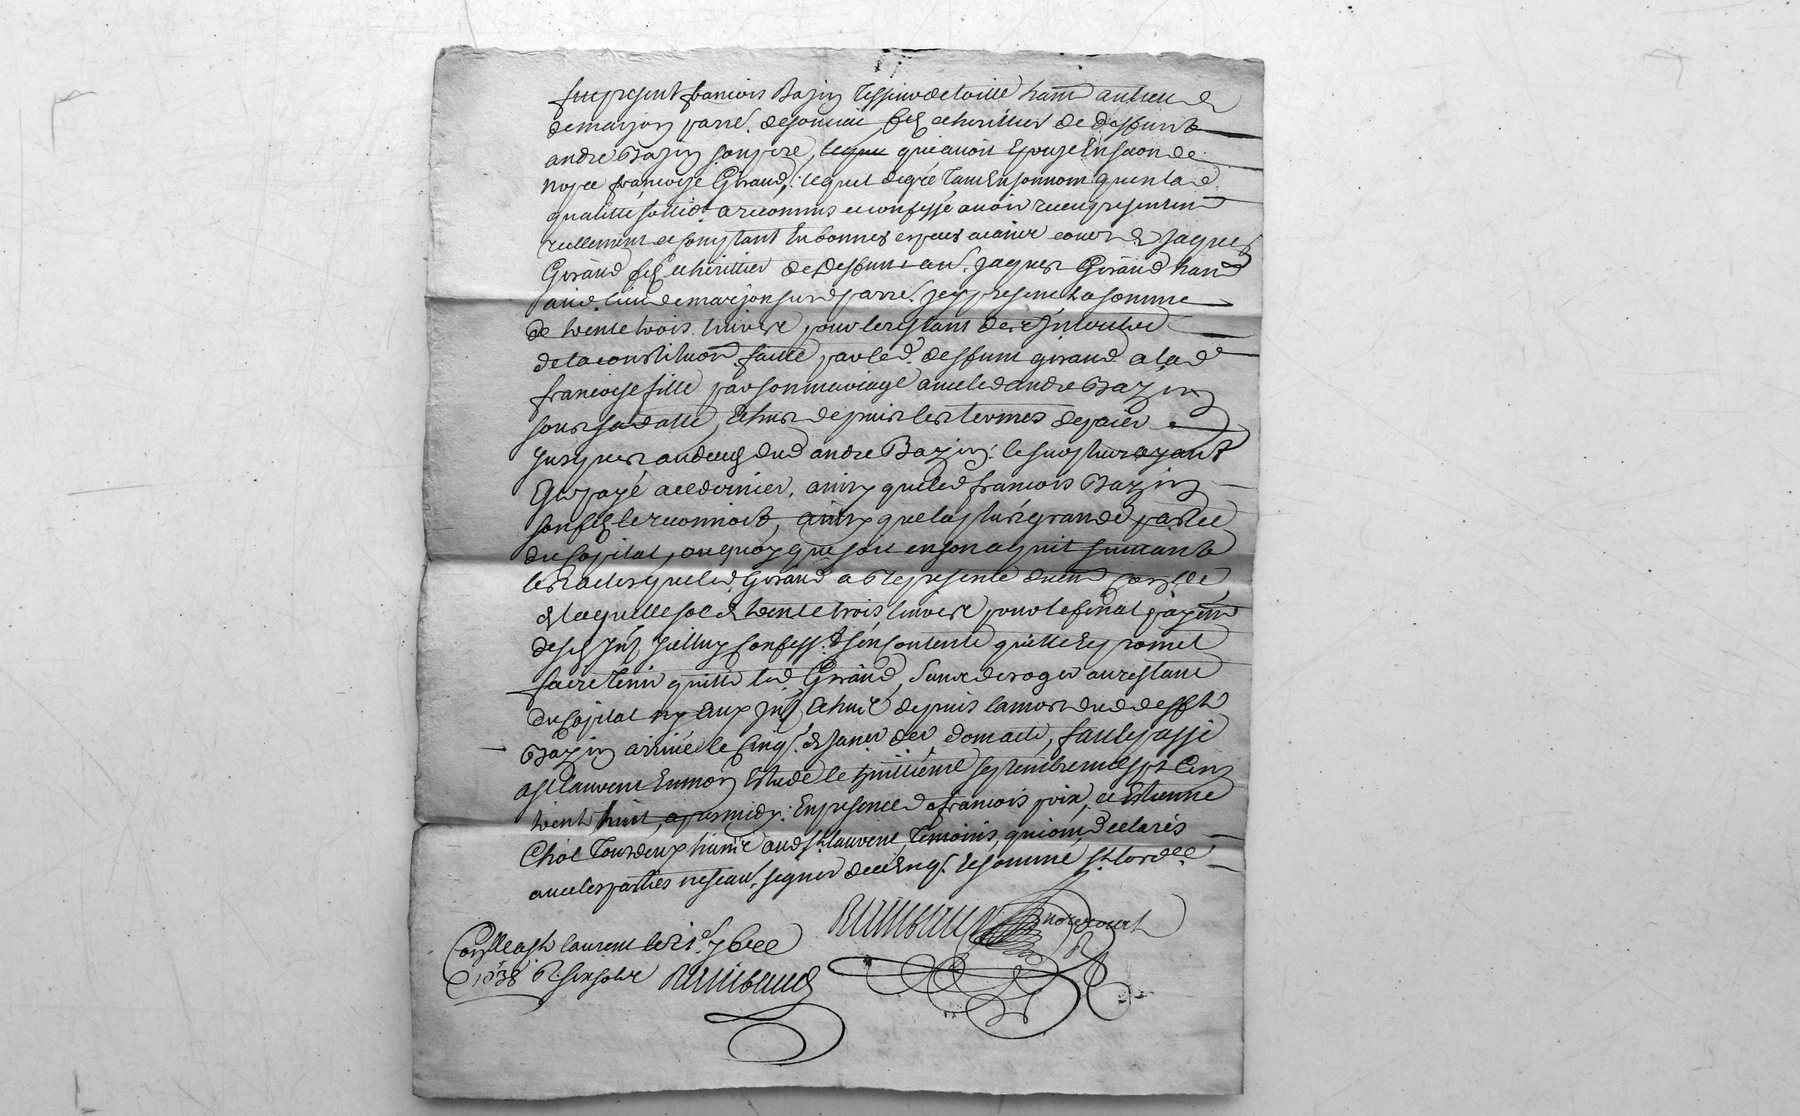 fut present francois Bazin Tessier de toille hant au lieu de
de marjon parre. de fils et heritier de deffunt
andre Bazin son pere, lequel qui avoit Epouzé En segonde
nopce francoise Giraud, lequel de gré tant En son nom qu'en lad
qualitté sottid. a reconnus et confessé avoir receu presentem
reellement et comptant En bonnes especes de Jaques
Giraud fils et heritier de deffunt aut. Jaques Giraud hant
aud. lieu de marjon sus d parre. Jcy present La somme
de trente trois livres, pour le restant des Jnterets
de la constitution faitte par led. deffunt giraud a lad
francoise fille par son mariage avec led andre Bazin
sous sa datte, Echus depuis les termes de paier
Jusques au deces dud andre Bazin: le surplus ayant
Eté payé a ce dernier, ainsy que led francois Bazin
son fils le reconnoit, ainsy que la plus grande partie
du Capital, en son acquit suivant
les actes que led. Giraud a represente
de laquelle so. de trente trois livres pour le final payem
desd. Jnt. content quitte Et promet
faire tenir quitte led Giraud, sans deroger au restant
du Capital ny aux Jnt Echus depuis la mort dud defft
Bazin arrivée le cinq. de Janvier der fait et passé
a St Laurent En mon Etude le huittieme septembre mil sept Cent
trente huit, apres midy. En presence de francois poix, et Estienne
Chol Tous deux hants aud St Laurent, Temoins, qui ont declarés
avec les parties ne scavoir signer de ce Enq. Et sommé St lord.ce
Raimbaud no.re royal
Con.llé a St Laurent le 21 7bre
1738 R. six sols Raimbaud